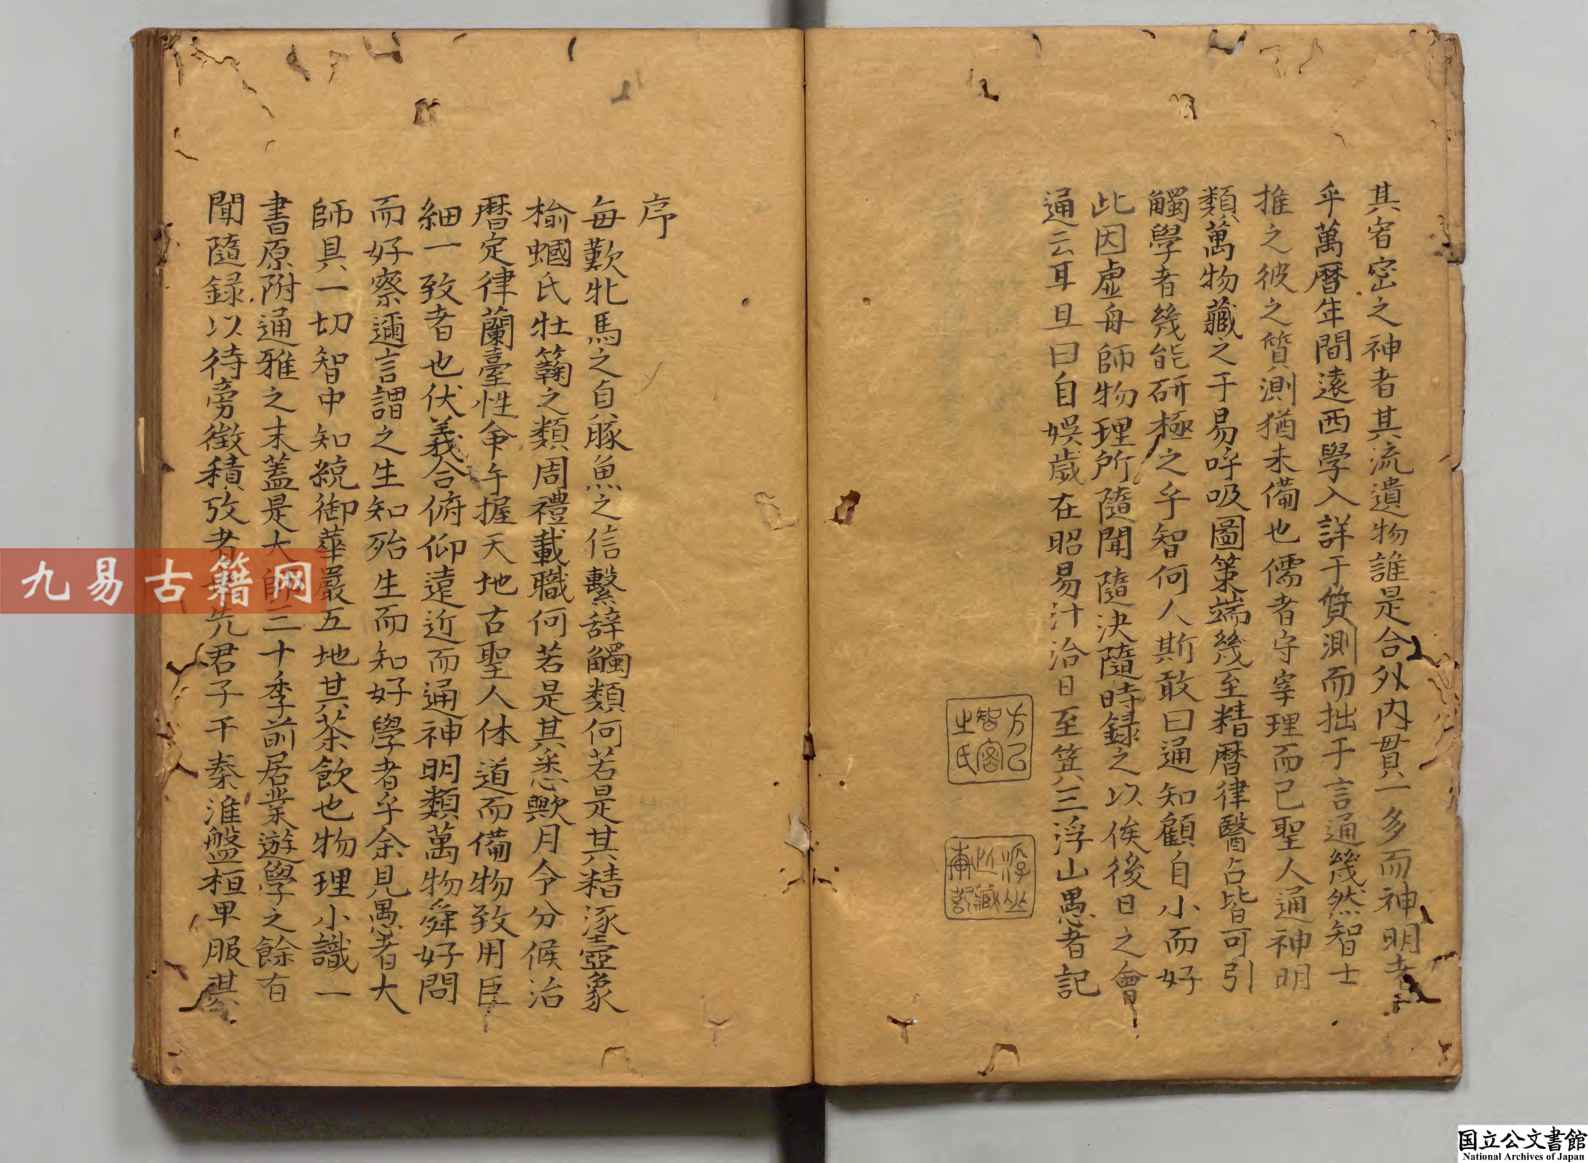 其宥密之神者其流遺物誰是合外内貫一多而神明者
乎萬暦年間遠西學入詳于質測而拙于言通幾然智士
推之彼之質測猶未備也儒者守宰理而已聖人通神明
類萬物藏之于易呼吸圖策端幾至精暦律醫占皆可引
觸學者幾能研極之乎智何人斯敢曰通知顧自小而好
此因虚舟師物理所隨聞隨決隨時録之以俟後日之會
通云耳且曰自娯歲在昭昜汁洽日至箕三浮山愚者記
方己
智密
之氏
浮山
此藏
序
每歎牝馬之自豚魚之信繫辭觸類何若是其精涿壺象
榆蟈氏牡蘜之類周禮載職何若是其悉歟月令分候治
暦定律蘭臺性命午握天地古聖人休道而備物致用臣
細一致者也伏羲合俯仰遠近而通神明類萬物舜好問
而好察邇言謂之生知殆生而知好學者乎余見愚者大
師具一切智中知統御華嚴五地其茶飲也物理小識一
書原附通雅之末蓋是大師二十季前居業遊學之餘有
聞隨録以待旁徵積攷者先君子干秦淮盤桓早服其
九易古籍网
国立公文書館
National Archives of Japan